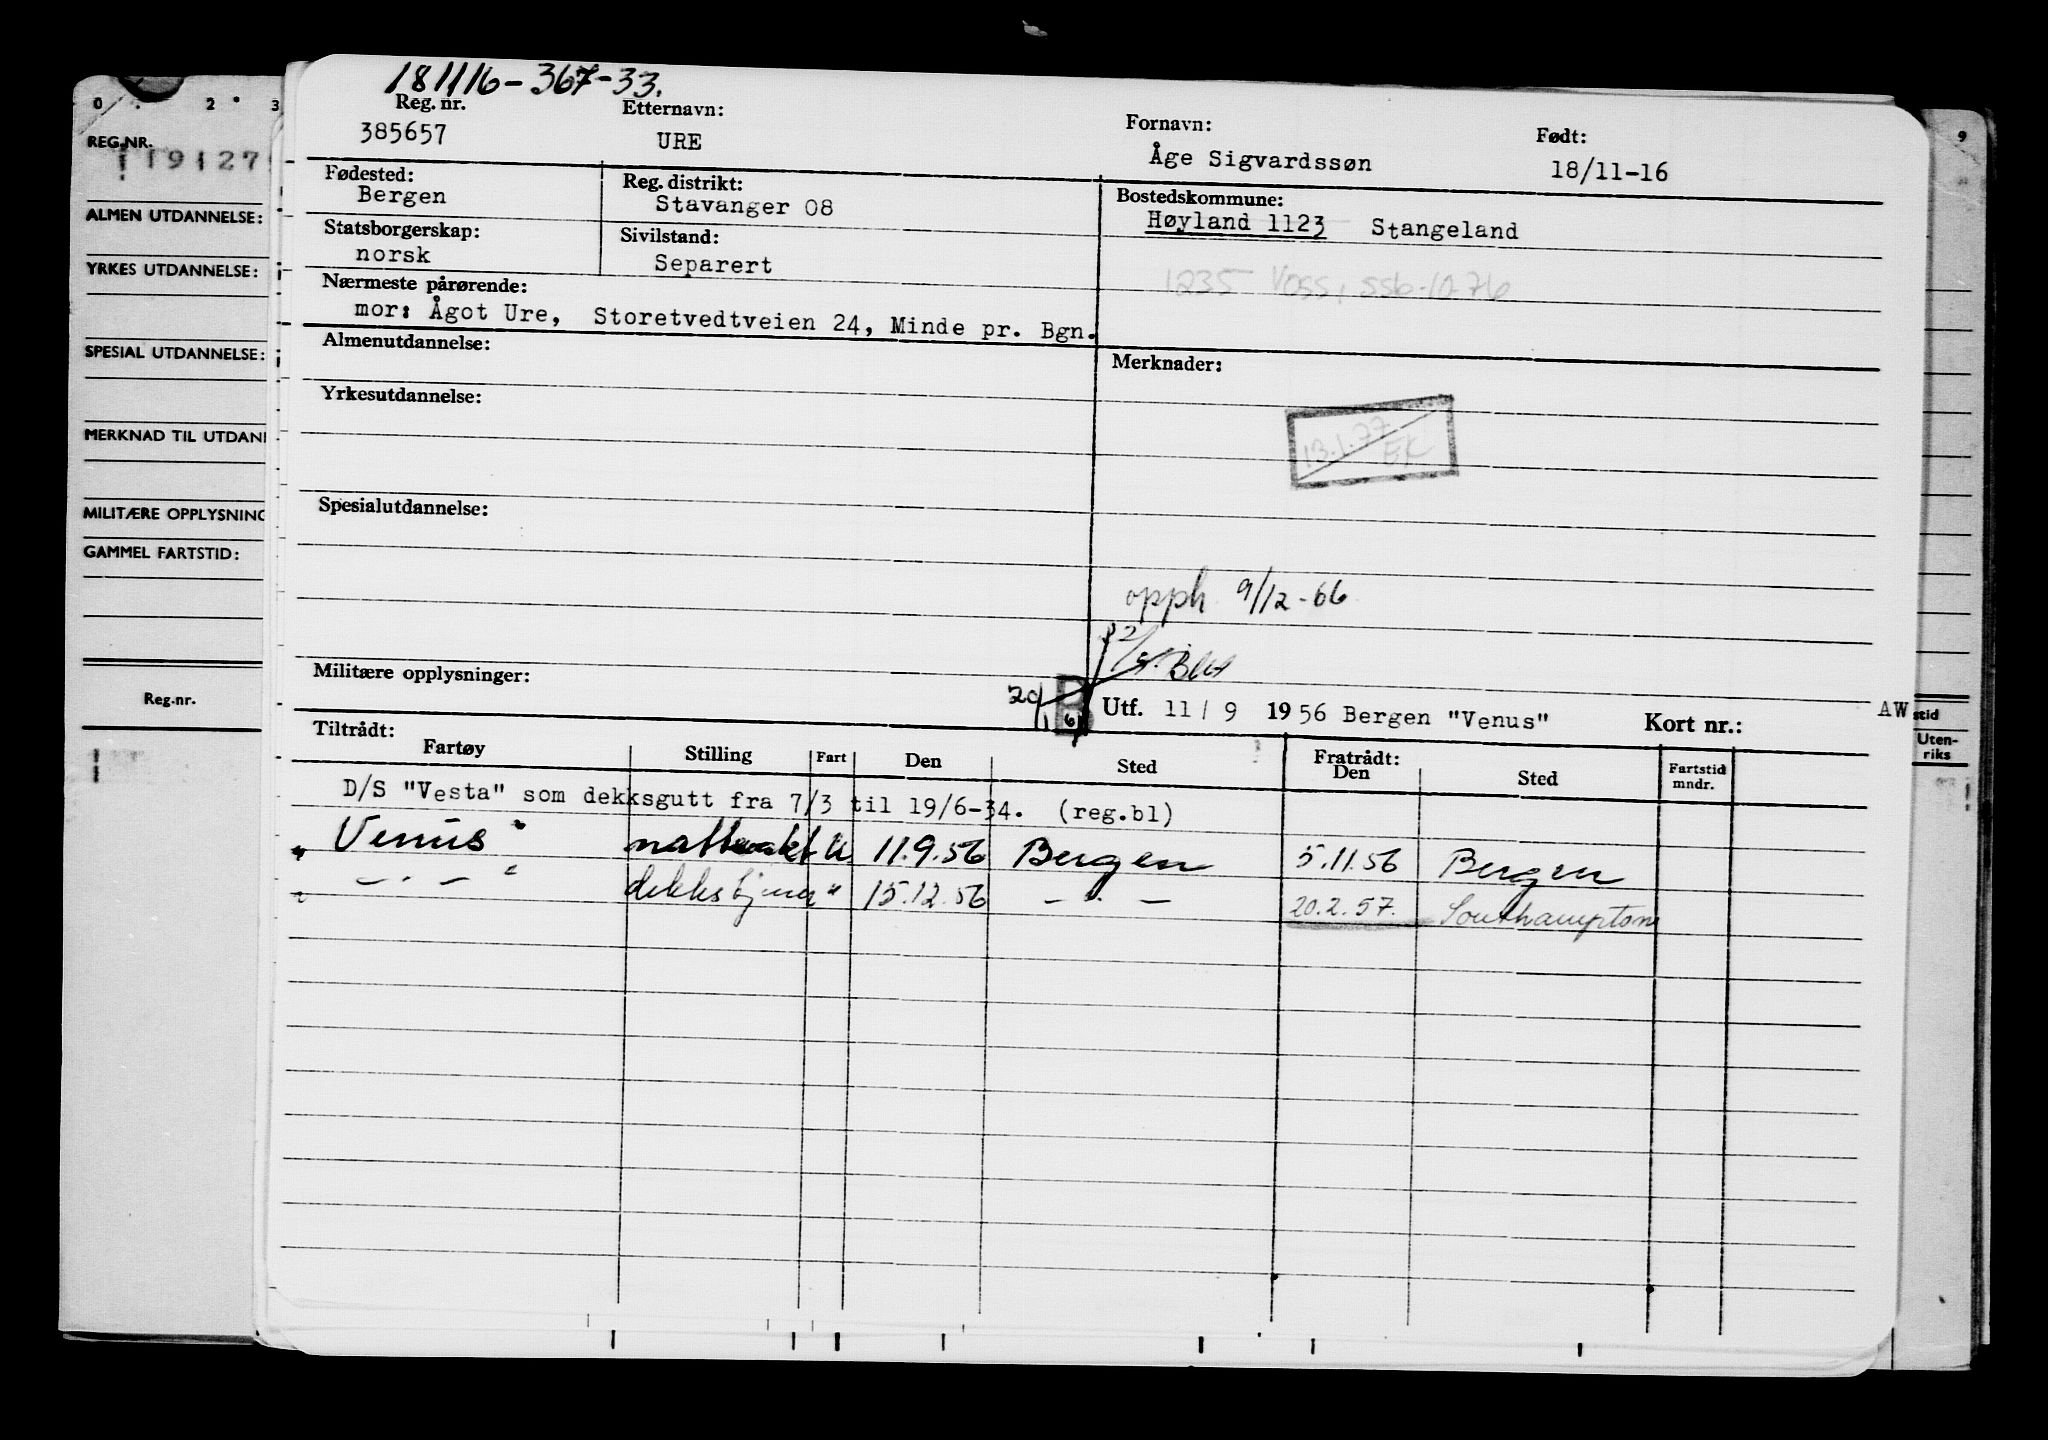 181116-367-33.
Reg. nr. Etternavn: Fornavn: Født:
385657 URE Åge Sigvardssøn 18/11-16
Fødested: Reg. distrikt: Bostedskommune:
Bergen Stavanger 08 Høyland 1123 Stangeland
Statsborgerskap: Sivilstand:
norsk Separert
1235 Voss, ssb-10-76
Nærmeste pårørende:
mor: Ågot Ure, Storetvedtveien 24, Minde pr. Bgn.
Almenutdannelse: Merknader:
Yrkesutdannelse:
13.1.77 EK
Spesialutdannelse:
opph. 9/12-66
Militære opplysninger:
Utf. 11/9 1956 Bergen "Venus" Kort nr.: AW
Tiltrådt: Fratrådt:
Fartøy Stilling Fart Den Sted Den Sted Fartstid mndr.
D/S "Vesta" som dekksgutt fra 7/3 til 19/6-34. (reg.bl)
" Venus " nattevakt U 11.9.56 Bergen 5.11.56 Bergen
" - . - " " 15.12.56 - . - 20.2.57. Southampton
0 2 3
REG.NR.
19127
ALMEN UTDANNELSE:
YRKES UTDANNELSE:
SPESIAL UTDANNELSE:
MERKNAD TIL UTDAN
MILITÆRE OPPLYSNING
GAMMEL FARTSTID:
Reg.nr.
9
stid
Uten-
riks